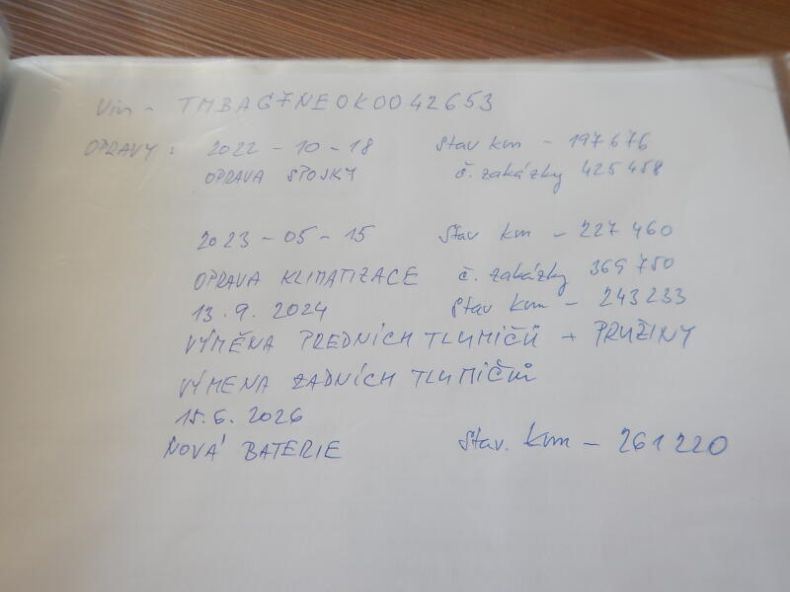 Vin - TMBAG7NE0K0042653
OPRAVY: 2022-10-18 Stav km - 197 676
OPRAVA SPOJKY č. zakázky 425 458
2023-05-15 Stav km - 227 460
OPRAVA KLIMATIZACE č. zakázky 369 750
13.9.2024 Stav km - 243 233
VÝMĚNA PREDNÍCH TLUMIČŮ + PRUŽINY
VÝMENA ZADNÍCH TLUMIČŮ
15.6.2026
NOVÁ BATERIE Stav. km - 261 220